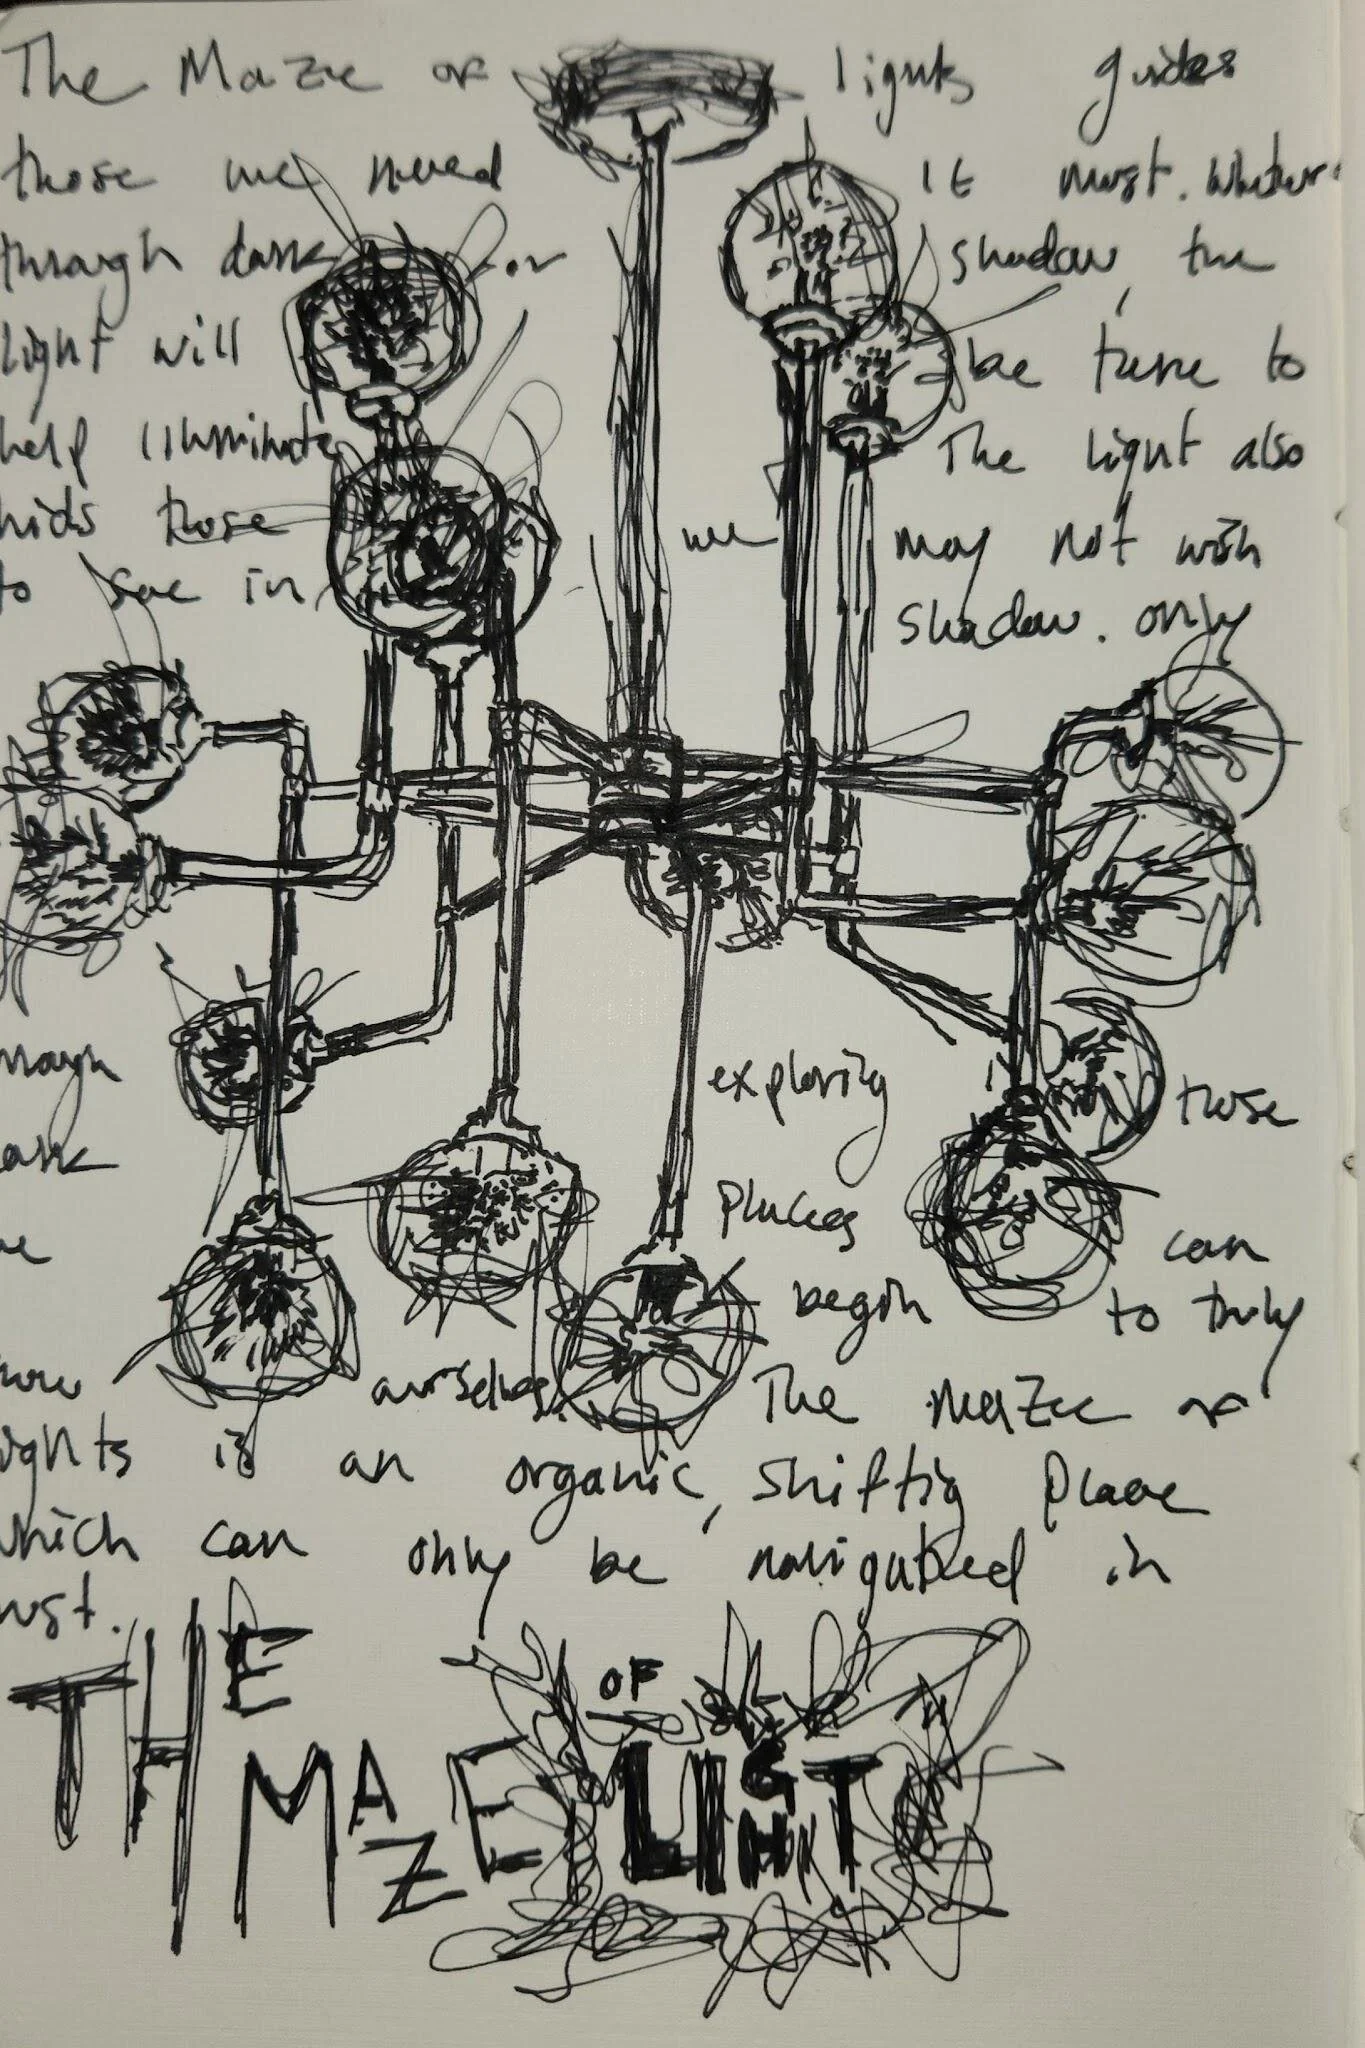 The Maze of lights guides
those we need it most. Whether
through dark or shadow, the
light will be there to
help illuminate The light also
hids those we may not wish
to see in shadow. only
exploring those
places can
begin to truly
ourselves. The maze of
is an organic, shifting place
which can only be navigated in
THE
MAZE OF LIGHT